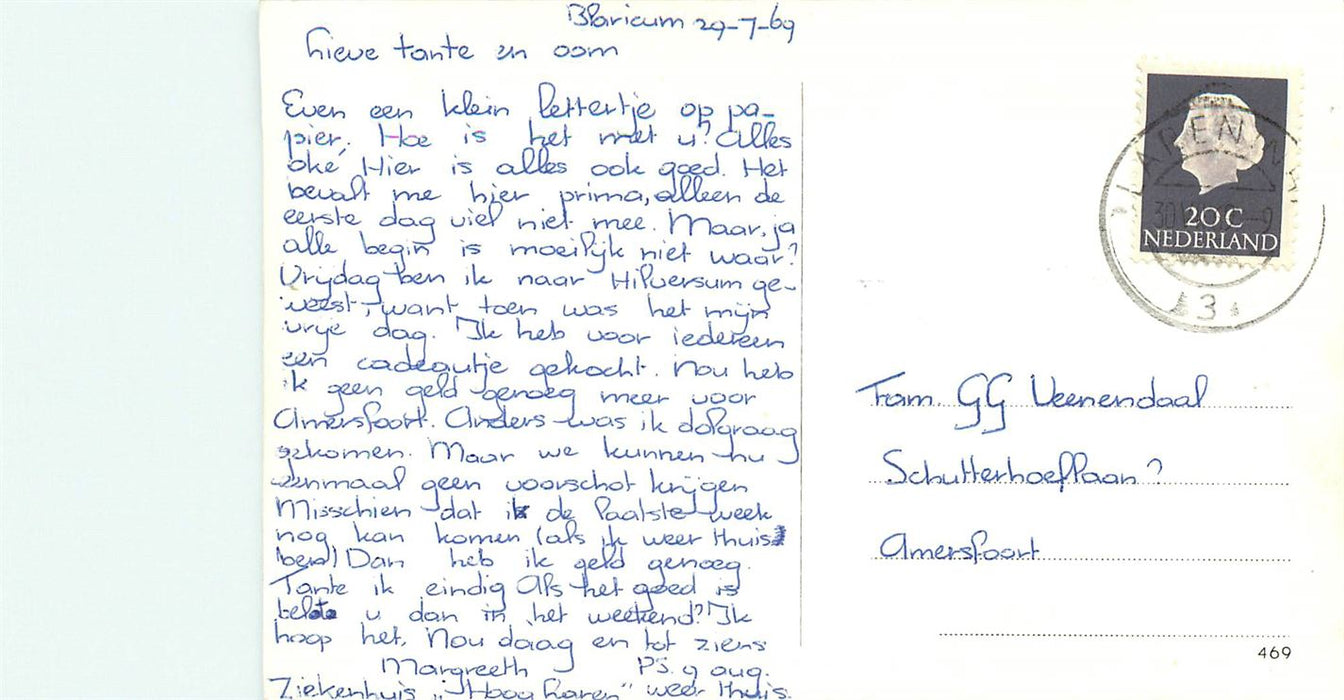 Blaricum 29-7-69
Lieve tante en oom
Even een klein lettertje op pa-
pier. Hoe is het met u? Alles
oké, Hier is alles ook goed. Het
bevalt me hier prima, alleen de
eerste dag viel niet mee. Maar, ja
alle begin is moeilijk niet waar?
Vrijdag ben ik naar Hilversum ge-
weest, want toen was het mijn
vrije dag. Ik heb voor iedereen
een cadeautje gekocht. Nou heb
ik geen geld genoeg meer voor
Amersfoort. Anders was ik dolgraag
gekomen. Maar we kunnen nu
eenmaal geen voorschot krijgen
Misschien dat ik de laatste week
nog kan komen (als ik weer thuis
ben) Dan heb ik geld genoeg.
Tante ik eindig Als het goed is
belt u dan in het weekend? Ik
hoop het. Nou daag en tot ziens
Margreeth P.S. 9 aug.
Ziekenhuis "Hoog Laren" weer thuis.
LAREN N
20 C
NEDERLAND
3
Fam. GG Veenendaal
Schutterhoeflaan?
Amersfoort
469